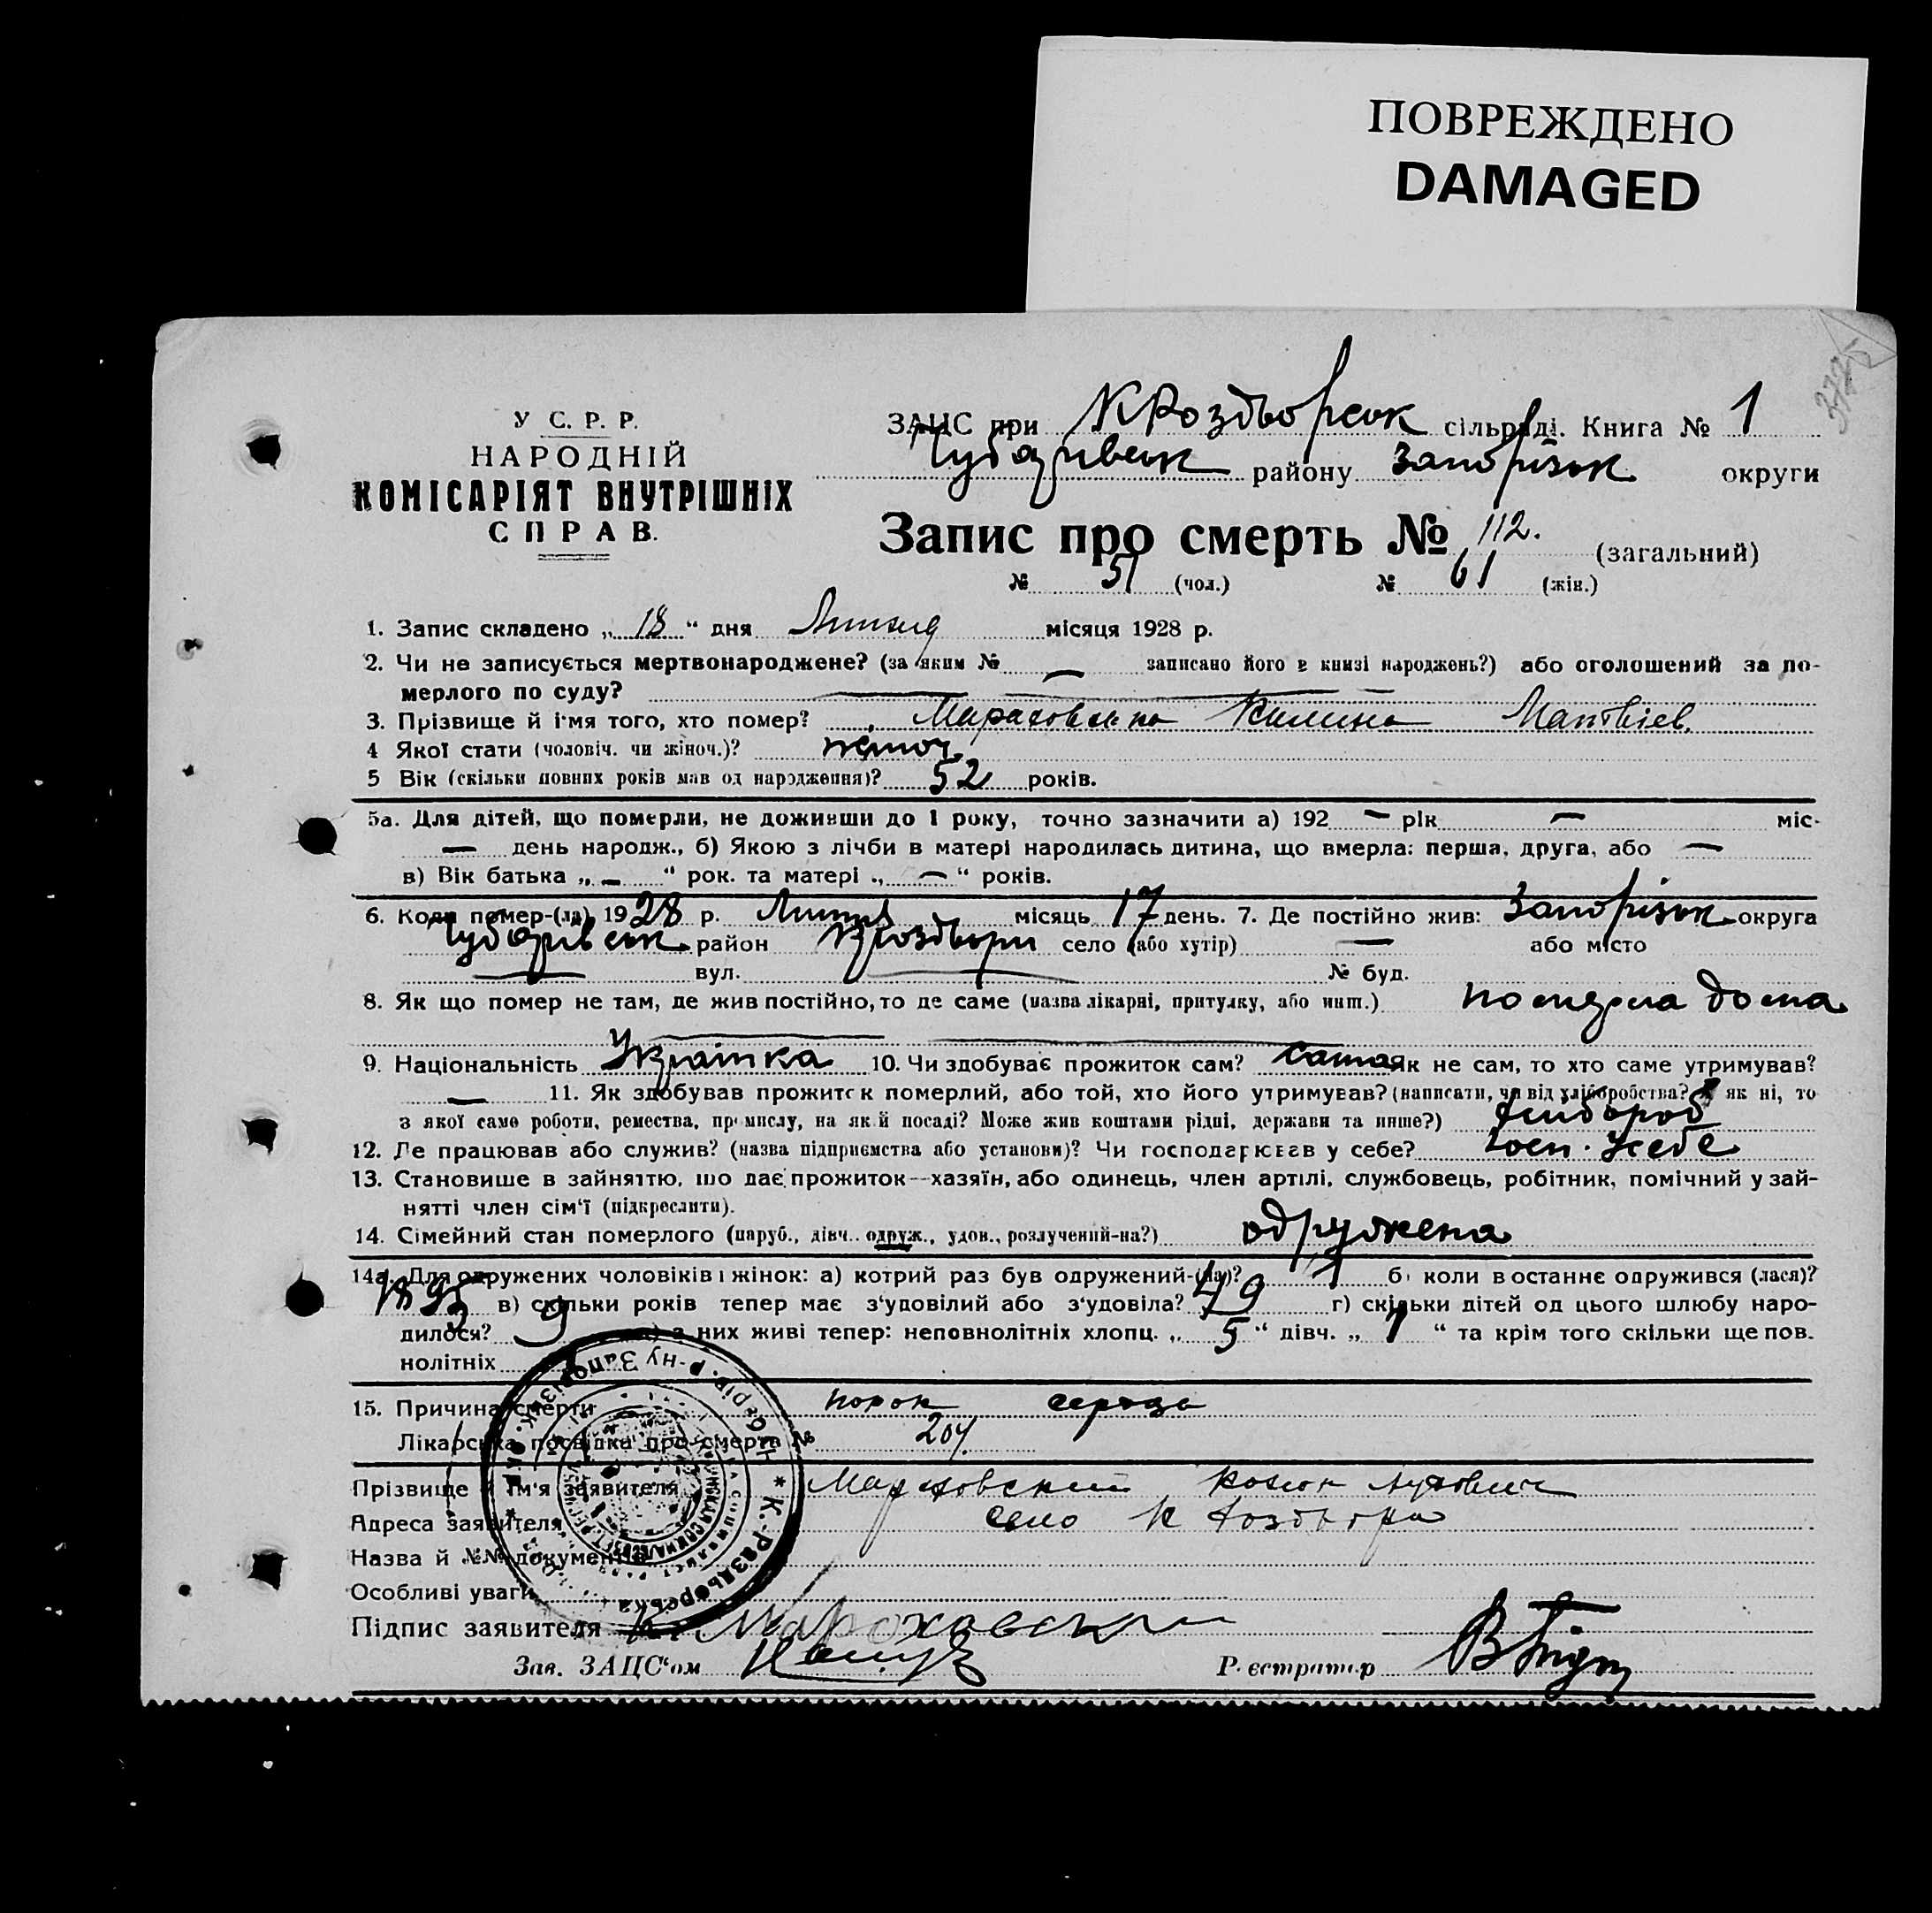 ПОВРЕЖДЕНО
DAMAGED
У С. Р. Р.
НАРОДНІЙ
КОМІСАРІЯТ ВНУТРІШНІХ
СПРАВ.
ЗАЦС при К Роздорськ сільраді. Книга № 1
Чубарівськ району Запорізьк округи
Запис про смерть № 112. (загальний)
№ 51 (чол.) № 61 (жін.)
1. Запис складено „ 18 “ дня Липня місяця 1928 р.
2. Чи не записується мертвонароджене? (за яким № — записано його в книзі народжень?) або оголошений за по-
мерлого по суду? —
3. Прізвище й ім'я того, хто помер? Мараховська Килина Матвієв.
4 Якої стати (чоловіч. чи жіноч.)? жіноч.
5 Вік (скільки повних років мав од народження)? 52 років.
5а. Для дітей, що померли, не доживши до 1 року, точно зазначити а) 192 — рік — міс-
— день народж., б) Якою з лічби в матері народилась дитина, що вмерла: перша, друга, або —
в) Вік батька „ — “ рок. та матері „ — “ років.
6. Коли помер-(ла) 1928 р. Липня місяць 17 день. 7. Де постійно жив: Запорізьк округа
Чубарівськ район село (або хутір) — або місто
— вул. — № буд.
8. Як що помер не там, де жив постійно, то де саме (назва лікарні, притулку, або инш.) померла дома
9. Національність Українка 10. Чи здобуває прожиток сам? сама Як не сам, то хто саме утримував?
— 11. Як здобував прожиток померлий, або той, хто його утримував? (написати, чи від хліборобства? А як ні, то
з якої саме роботи, ремества, промислу, на якій посаді? Може жив коштами рідні, держави та инше?) хлібороб
12. Де працював або служив? (назва підприємства або установи)? Чи господарював у себе? госп. у себе
13. Становище в зайняттю, що дає прожиток—хазяїн, або одинець, член артілі, службовець, робітник, помічний у зай-
нятті член сім'ї (підкреслити).
14. Сімейний стан померлого (паруб., дівч.. одруж., удов., розлучений-на?) одружена
14а. Для одружених чоловіків і жінок: а) котрий раз був одружений-(на)? 1 б) коли в останнє одружився (лася)?
1895 в) скільки років тепер має з'удовілий або з'удовіла? 49 г) скільки дітей од цього шлюбу наро-
дилося? 9 з них живі тепер: неповнолітніх хлопц. „ 5 “ дівч. „ 1 “ та крім того скільки ще пов.
нолітніх
15. Причина смерти порок сердця
Лікарська посвідка про смерть № 204
Прізвище й ім'я заявителя Мараховский
Адреса заявителя село К Роздори
Назва й №№ документів
Особливі уваги
Підпис заявителя Мараховски
Зав. ЗАЦС'ом Реєстратор
К.-Раздьорська